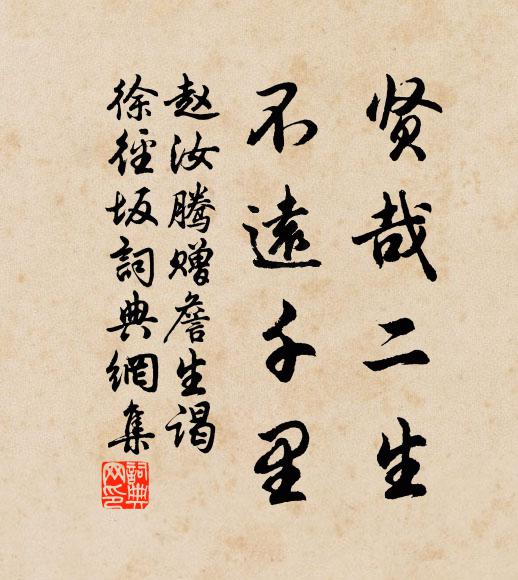 贤哉二生
不遠千里
赵汝腾赠詹生谒
徐径坂詞典網集
詞典网印